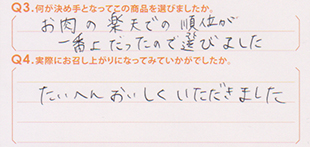 Q3.何が決め手となってこの商品を選びましたか。
お肉の楽天での順位が
一番上だったので選びました
Q4.実際にお召し上がりになってみていかがでしたか。
たいへんおいしくいただきました